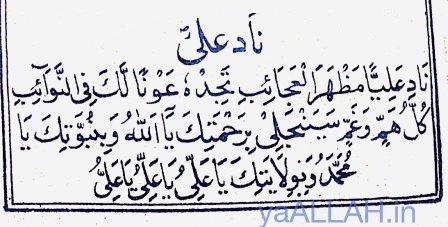 نَادِ عَلِیّ
نَادِ عَلِيًّا مَظْهَرَ الْعَجَائِبِ تَجِدْهُ عَوْنًا لَّكَ فِی النَّوَآئِبِ
كُلُّ هَمٍّ وَغَمٍّ سَيَنْجَلِیْ بِرَحْمَتِكَ يَآ اَللهُ وَ بِنُبُوَّتِكَ يَا
مُحَمَّدُ وَ بِوِلَايَتِكَ يَا عَلِیُّ يَا عَلِیُّ يَا عَلِیُّ
yaALLAH.in